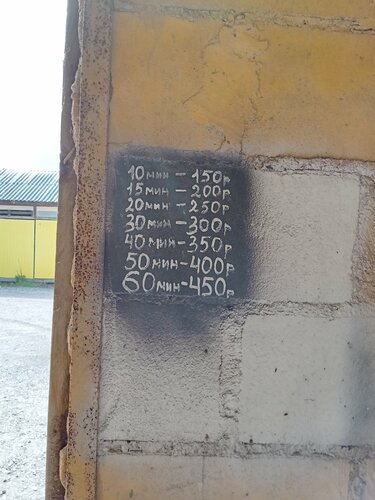 10мин - 150р
15мин - 200р
20мин - 250р
30мин - 300р
40мин - 350р
50мин - 400р
60мин - 450р